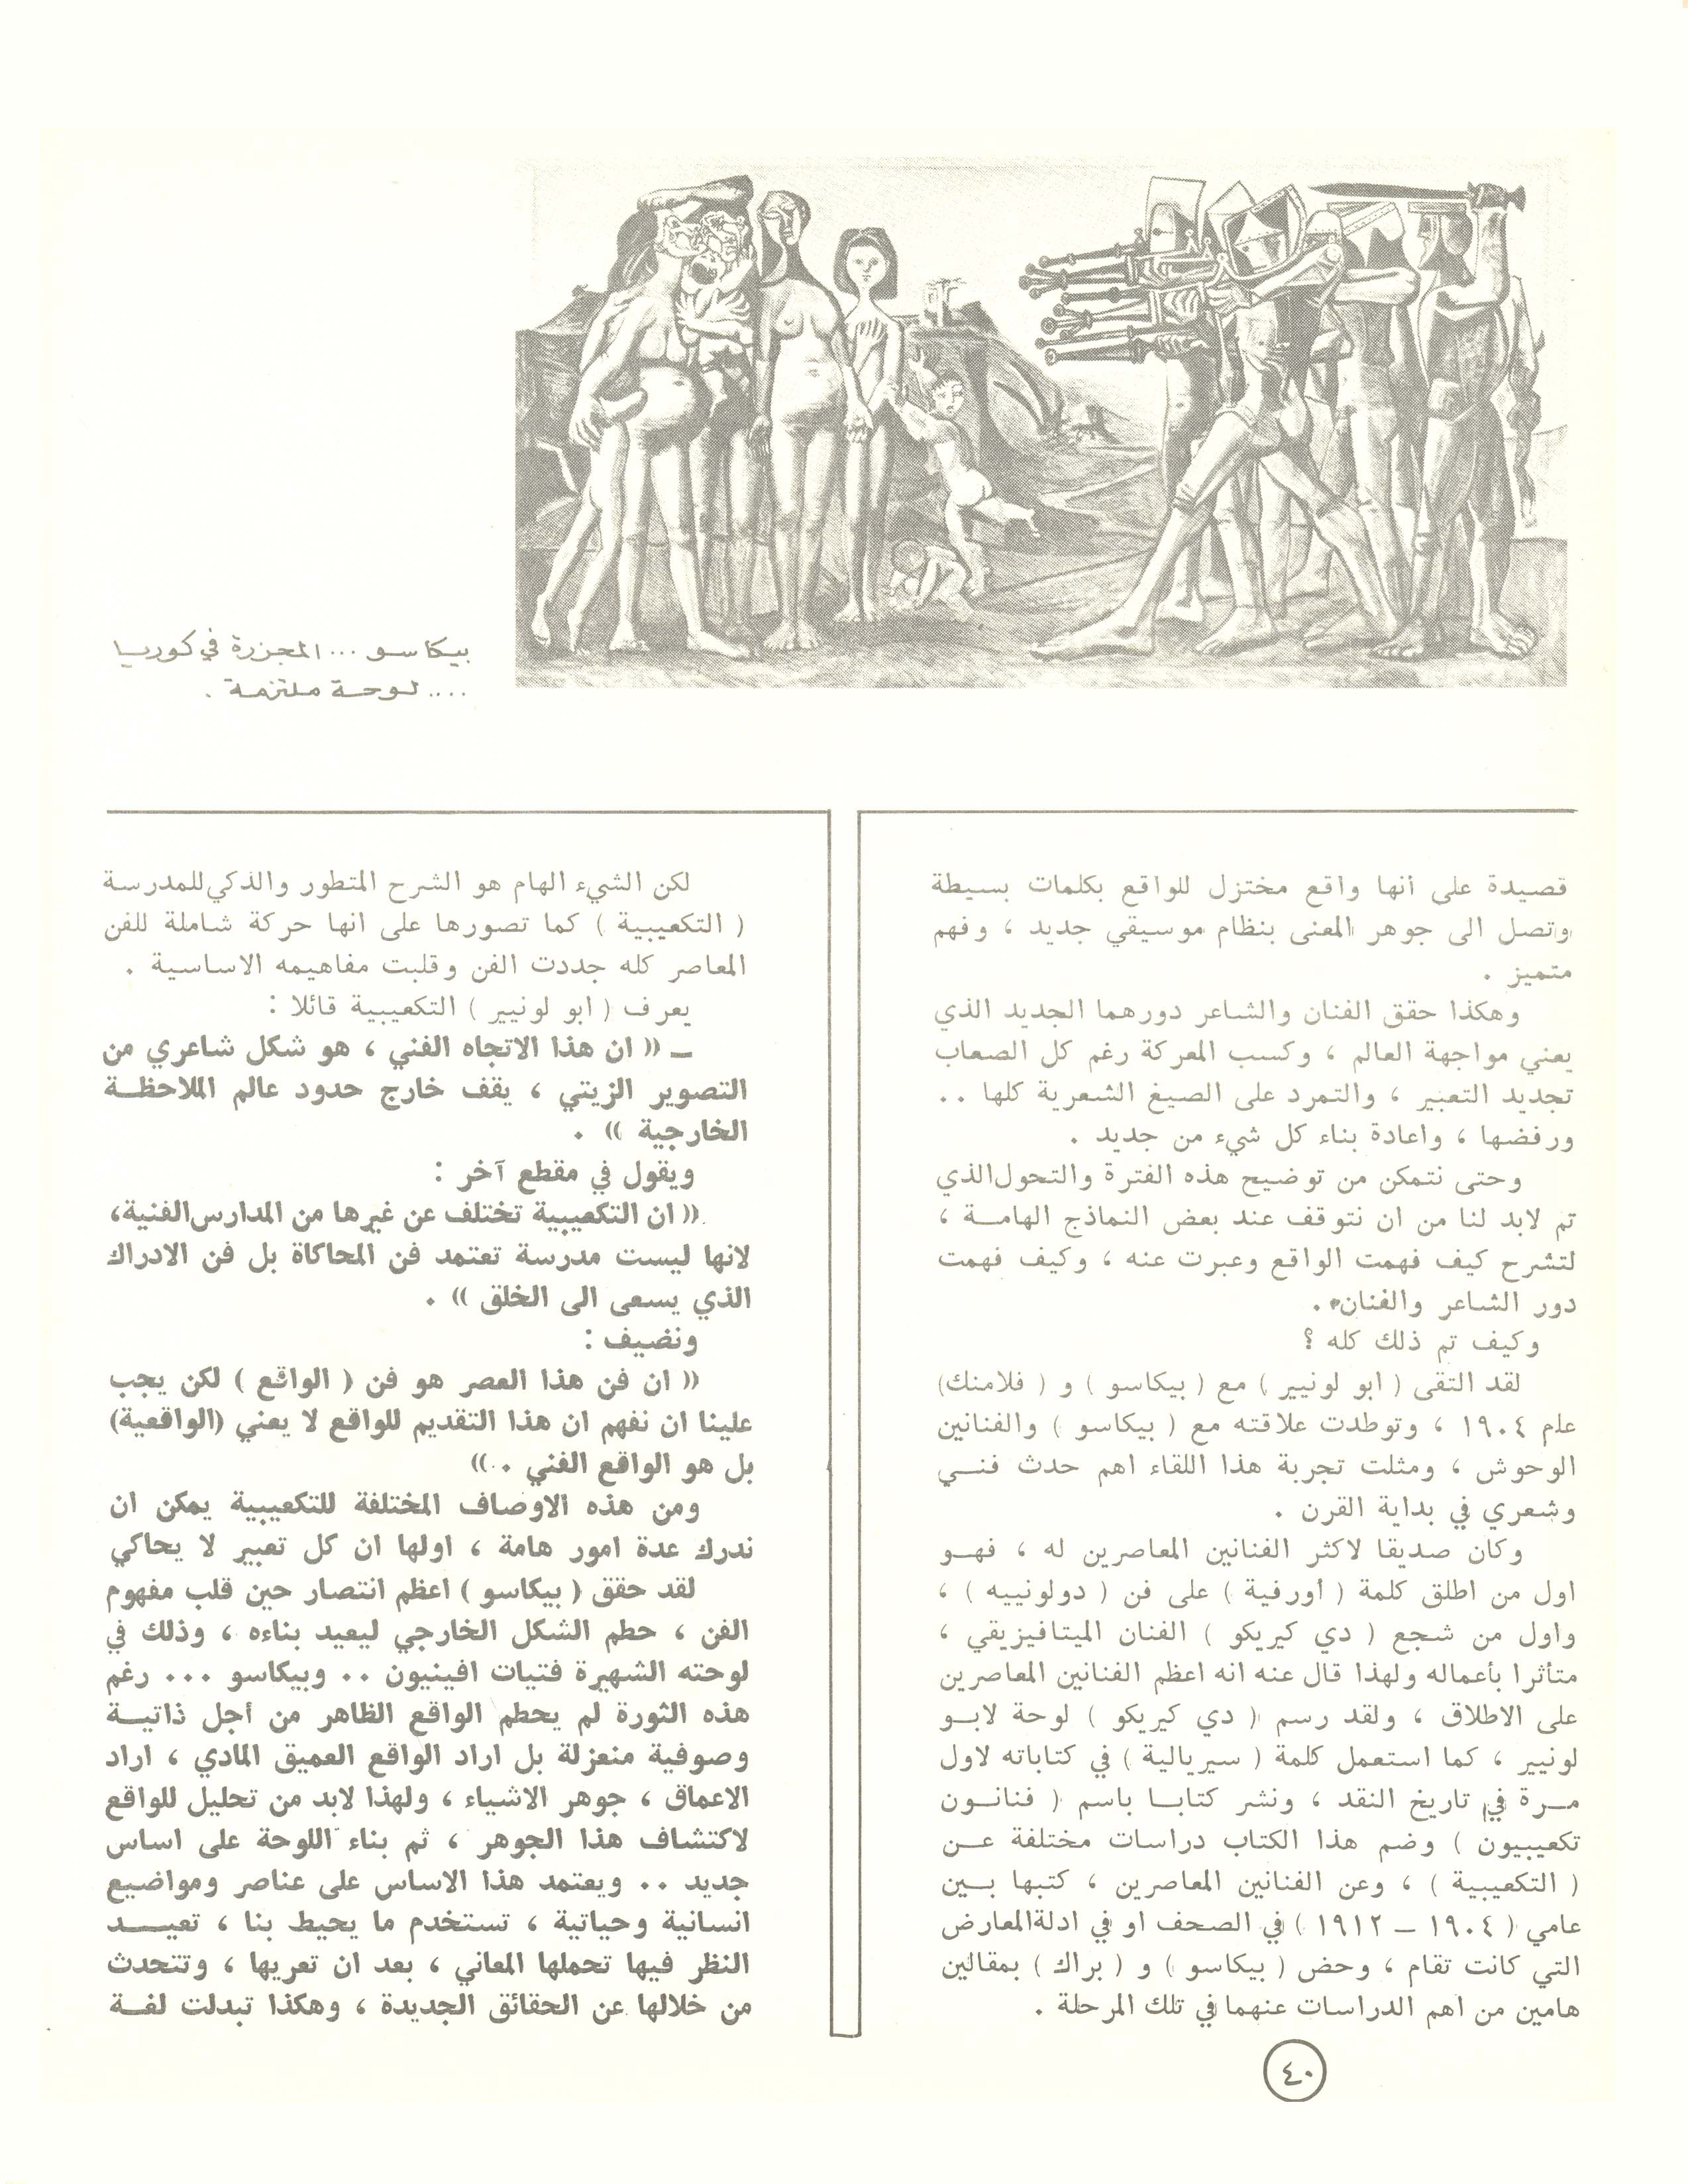 بيكاسو ... المجزرة في كوريا
.... لوحة ملتزمة .
قصيدة على أنها واقع مختزل للواقع بكلمات بسيطة
وتصل الى جوهر المعنى بنظام موسيقي جديد ، وفهم
متميز .
وهكذا حقق الفنان والشاعر دورهما الجديد الذي
يعني مواجهة العالم ، وكسب المعركة رغم كل الصعاب
تجديد التعبير ، والتمرد على الصيغ الشعرية كلها ..
ورفضها ، واعادة بناء كل شيء من جديد .
وحتى نتمكن من توضيح هذه الفترة والتحول الذي
تم لابد لنا من ان نتوقف عند بعض النماذج الهامـة ،
لتشرح كيف فهمت الواقع وعبرت عنه ، وكيف فهمت
دور الشاعر والفنان .
وكيف تم ذلك كله ؟
لقد التقى ( ابو لونيير ) مع ( بيكاسو ) و ( فلامنك )
عام ١٩٠٤ ، وتوطدت علاقته مع ( بيكاسو ) والفنانين
الوحوش ، ومثلت تجربة هذا اللقاء اهم حدث فنـي
وشعري في بداية القرن .
وكان صديقا لاكثر الفنانين المعاصرين له ، فهـو
اول من اطلق كلمة ( أورفية ) على فن ( دولونييه ) ،
واول من شجع ( دي كيريكو ) الفنان الميتافيزيقي ،
متأثرا بأعماله ولهذا قال عنه انه اعظم الفنانين المعاصرين
على الاطلاق ، ولقد رسم ( دي كيريكو ) لوحة لابـو
لونيير ، كما استعمل كلمة ( سيريالية ) في كتاباته لاول
مـرة في تاريخ النقد ، ونشر كتابـا باسم ( فنانـون
تكعيبيون ) وضم هذا الكتاب دراسات مختلفة عـن
( التكعيبية ) ، وعن الفنانين المعاصرين ، كتبها بـين
عامي ( ١٩٠٤ – ١٩١٢ ) في الصحف او في ادلة المعارض
التي كانت تقام ، وخص ( بيكاسو ) و ( براك ) بمقالين
هامين من اهم الدراسات عنهما في تلك المرحلة .
لكن الشيء الهام هو الشرح المتطور والذكي للمدرسة
( التكعيبية ) كما تصورها على انها حركة شاملة للفن
المعاصر كله جددت الفن وقلبت مفاهيمه الاساسية .
يعرف ( ابو لونيير ) التكعيبية قائلا :
ــ « ان هذا الاتجاه الفني ، هو شكل شاعري من
التصوير الزيتي ، يقف خارج حدود عالم الملاحظـة
الخارجية » .
ويقول في مقطع آخر :
« ان التكعيبية تختلف عن غيرها من المدارس الفنية،
لانها ليست مدرسة تعتمد فن المحاكاة بل فن الادراك
الذي يسعى الى الخلق » .
ونضيف :
« ان فن هذا العصر هو فن ( الواقع ) لكن يجب
علينا ان نفهم ان هذا التقديم للواقع لا يعني (الواقعية)
بل هو الواقع الفني .»
ومن هذه الاوصاف المختلفة للتكعيبية يمكن ان
ندرك عدة امور هامة ، اولها ان كل تعبير لا يحاكي
لقد حقق ( بيكاسو ) اعظم انتصار حين قلب مفهوم
الفن ، حطم الشكل الخارجي ليعيد بناءه ، وذلك في
لوحته الشهيرة فتيات افينيون .. وبيكاسو ... رغم
هذه الثورة لم يحطم الواقع الظاهر من أجل ذاتيـة
وصوفية منعزلة بل اراد الواقع العميق المادي ، اراد
الاعماق ، جوهر الاشياء ، ولهذا لابد من تحليل للواقع
لاكتشاف هذا الجوهر ، ثم بناء اللوحة على اساس
جديد .. ويعتمد هذا الاساس على عناصر ومواضيع
انسانية وحياتية ، تستخدم ما يحيط بنا ، تعيــد
النظر فيها تحملها المعاني ، بعد ان تعريها ، وتتحدث
من خلالها عن الحقائق الجديدة ، وهكذا تبدلت لغـة
٤٠